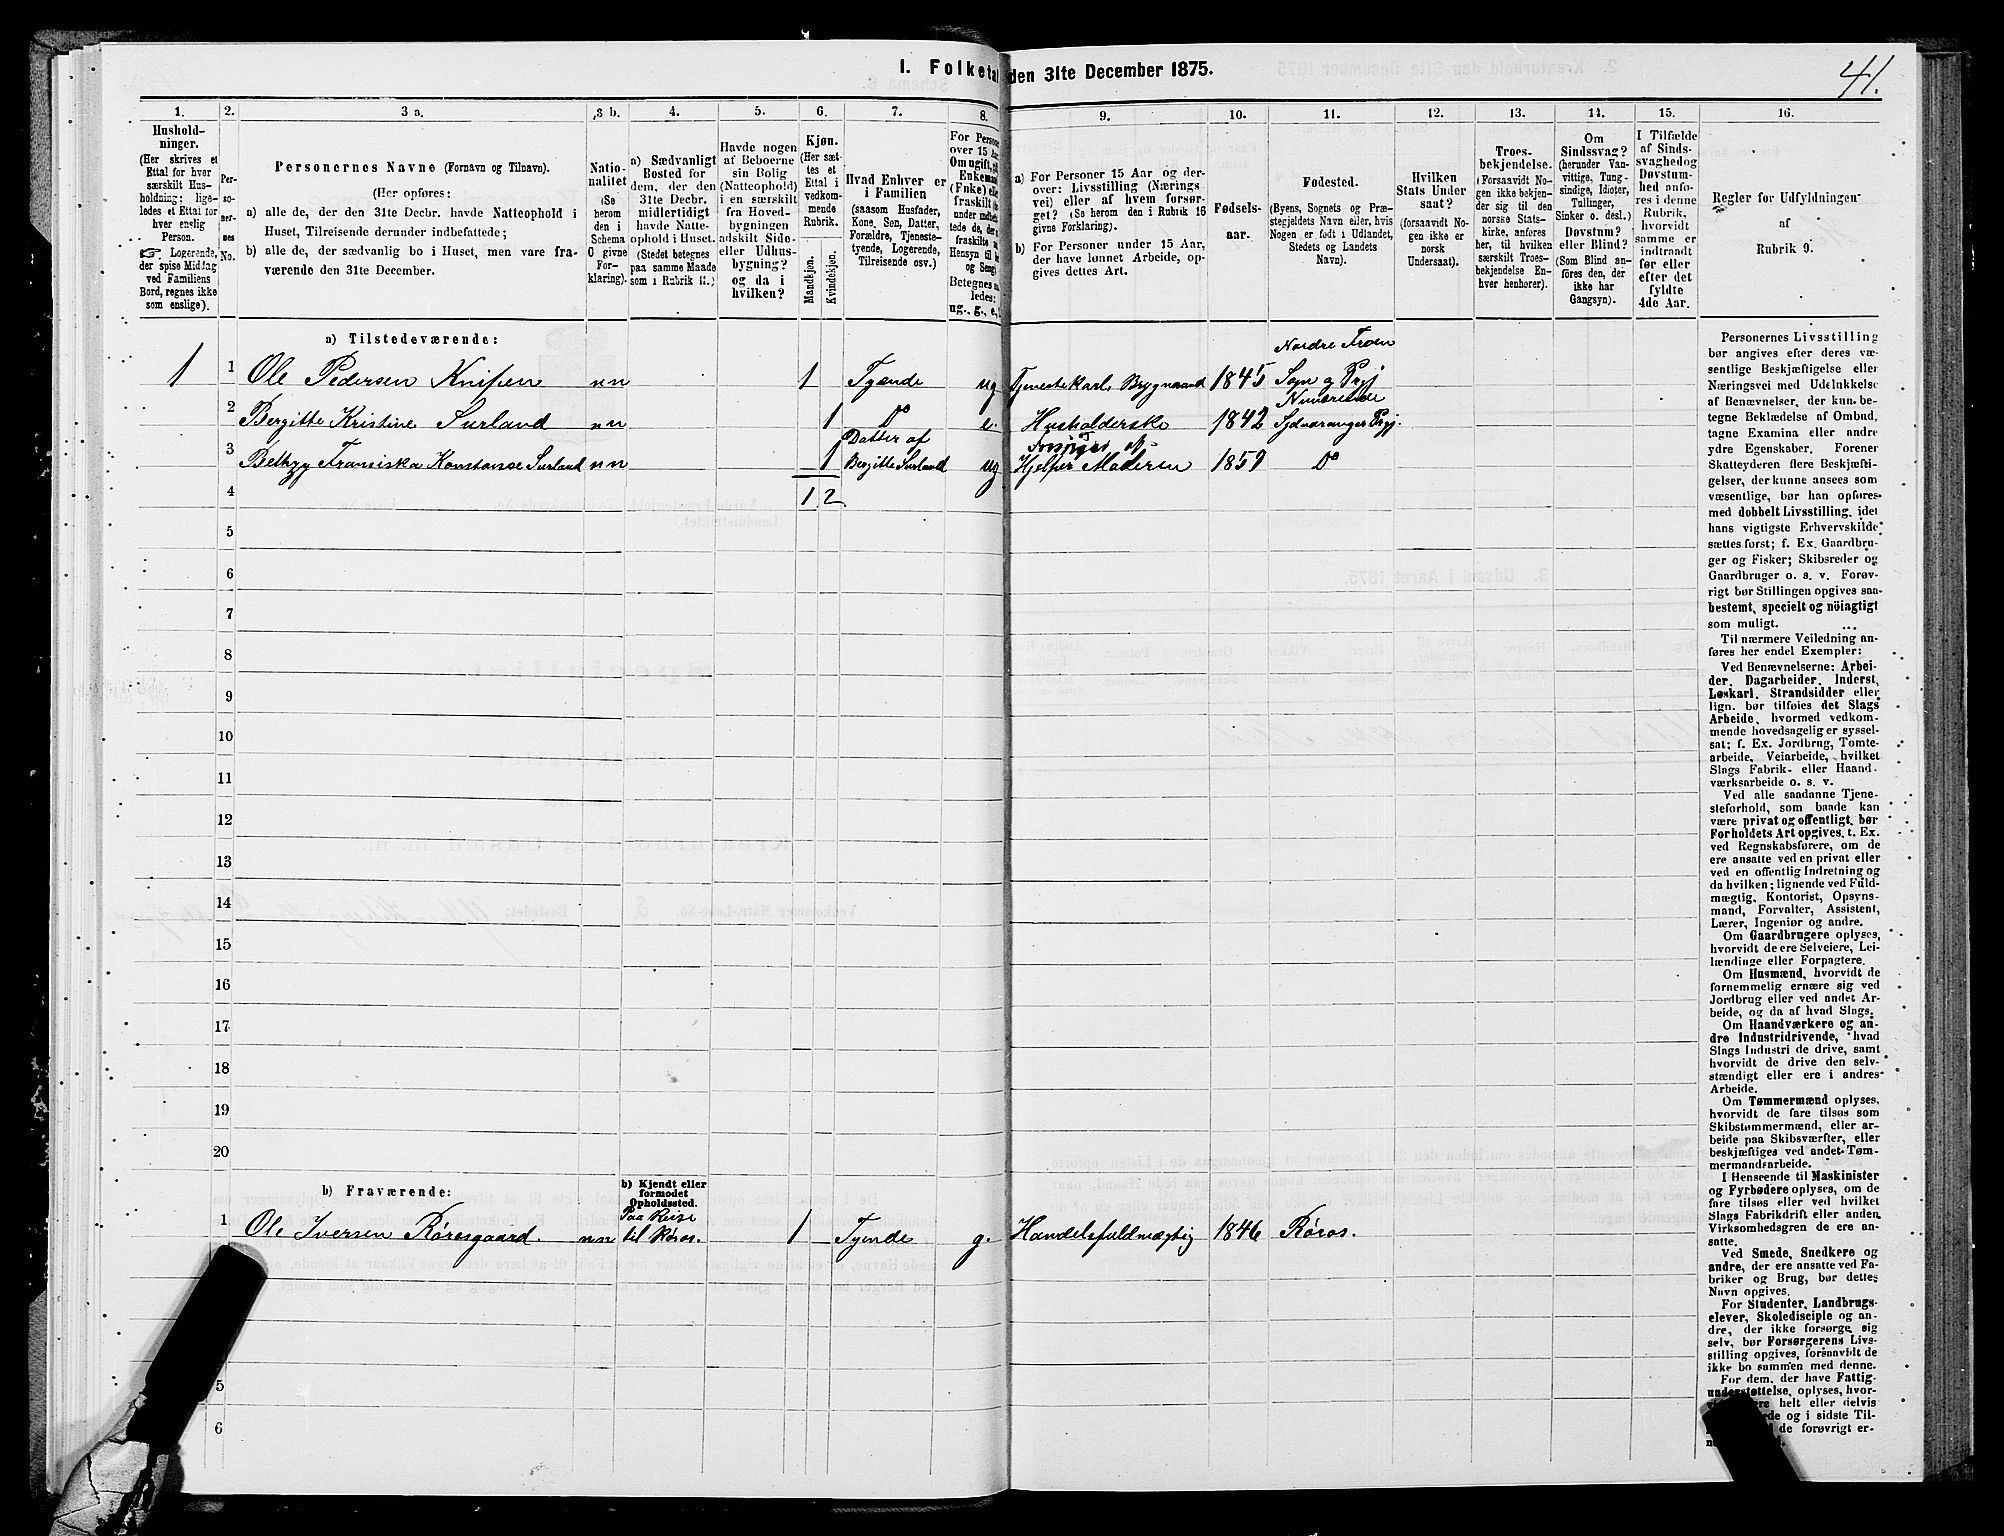 I. Folketal den 31te December 1875.
41.
1.
Hushold-
ninger.
(Her skrives et
Ettal for hver
særskilt Hus-
holdning; lige-
ledes et Ettal for
hver enslig
Person.
☞ Logerende,
der spise Middag
ved Familiens
Bord, regnes ikke
som enslige).
2.
Per-
so-
ner-
nes
No.
3 a.
Personernes Navne (Fornavn og Tilnavn).
(Her opføres:
a) alle de, der den 31te Decbr. havde Natteophold i
Huset, Tilreisende derunder indbefattede;
b) alle de, der sædvanlig bo i Huset, men vare fra-
værende den 31te December.
3 b.
Natio-
nalitet
(Se
herom
den i
Schema
6 givne
For-
klaring).
4.
a) Sædvanligt
Bosted for
dem, der den
31te Decbr.
midlertidigt
havde Natte-
ophold i Huset.
(Stedet betegnes
paa samme Maade
som i Rubrik 11.)
5.
Havde nogen
af Beboerne
sin Bolig
(Natteophold)
i en særskilt
fra Hoved-
bygningen
adskilt Side-
eller Udhus-
bygning?
og da i
hvilken?
6.
Kjøn.
(Her sæt-
tes et
Ettal i
vedkom-
mende
Rubrik.
Mandkjøn.
Kvindekjøn.
7.
Hvad Enhver er
i Familien
(saasom Husfader,
Kone, Søn, Datter,
Forældre, Tjeneste-
tyende, Logerende,
Tilreisende osv.)
8.
For Persone
over 15 Aar
Om ugift, gi
Enkeman
(Enke) elle
fraskilt
ug., g., e.,
9.
a) For Personer 15 Aar og der-
over: Livsstilling (Nærings
vei) eller af hvem forsør-
get? (Se herom den i Rubrik 16
givne Forklaring).
b) For Personer under 15 Aar,
der have lønnet Arbeide, op-
gives dettes Art.
10.
Fødsels-
aar.
11.
Fødested.
(Byens, Sognets og Præ-
stegjeldets Navn eller, hvis
Nogen er født i Udlandet,
Stedets og Landets
Navn).
12.
Hvilken
Stats Under
saat?
(forsaavidt No-
gen ikke er
norsk
Undersaat).
13.
Troes-
bekjendelse.
(Forsaavidt No-
gen ikke bekjen-
der sig til den
norske Stats-
kirke, anføres
her, til hvilken
særskilt Troes-
bekjendelse En-
hver henhører).
14.
Om
Sindssvag?
(herunder Van-
vittige, Tung-
sindige, Idioter,
Tullinger,
Sinker o. desl.)
Døvstum?
eller Blind?
(Som Blind an-
føres den, der
ikke har
Gangsyn).
15.
I Tilfælde
af Sinds-
svaghed og
Døvstum-
hed anfø-
res i denne
Rubrik,
hvorvidt
samme er
indtraadt
før eller
efter det
fyldte
4de Aar.
16.
Regler for Udfyldningen
af
Rubrik 9.
a) Tilstedeværende:
1 1 Ole Pedersen Knipen nn 1 Tyende ug Tjenestekarl, Brygmand 1845 Nordre Froen Sogn og Prgj
2 Bergitte Kristine Surland nn 1 Do e. Husholderske 1842 Nuværende Sydvaranger Prgj.
3 Bethzy Franciska Konstanse Surland nn 1 Datter af Bergitte Surland ug Forsørges af Hjelper Moderen 1857 Do
4 1 2
5
6
7
8
9
10
11
12
13
14
15
16
17
18
19
20
b) Fraværende:
b) Kjendt eller
formodet
Opholdssted.
1 Ole Iversen Rörosgaard. nn Paa Reise til Röros. 1 Tyende g. Handelsfuldmægtig 1846 Röros.
5
6
Personernes Livsstilling
bør angives efter deres væ-
sentlige Beskjæftigelse eller
Næringsvei med Udelukkelse
af Benævnelser, der kun be-
tegne Beklædelse af Ombud,
tagne Examina eller andre
ydre Egenskaber. Forener
Skatteyderen flere Beskjæfti-
gelser, der kunne ansees som
væsentlige, bør han opføres
med dobbelt Livsstilling, idet
hans vigtigste Erhvervskilde
sættes først; f. Ex. Gaardbru-
ger og Fisker; Skibsreder og
Gaardbruger o. s. v. Forøv-
rigt bør Stillingen opgives saa
bestemt, specielt og nöiagtigt
som muligt.
Til nærmere Veiledning an-
føres her endel Exempler:
Ved Benævnelserne: Arbei-
der, Dagarbeider, Inderst,
Løskarl, Strandsidder eller
lign. bør tilføies det Slags
Arbeide, hvormed vedkom-
mende hovedsagelig er syssel-
sat; f. Ex. Jordbrug, Tomte-
arbeide, Veiarbeide, hvilket
Slags Fabrik- eller Haand-
værksarbeide o. s. v.
Ved alle saadanne Tjene-
steforhold, som baade kan
være privat og offentligt, bør
Forholdets Art opgives, t. Ex.
ved Regnskabsførere, om de
ere ansatte ved en privat eller
ved en offentlig Indretning og
da hvilken; lignende ved Fuld-
mægtig, Kontorist, Opsyns-
mand, Forvalter, Assistent,
Lærer, Ingeniør og andre.
Om Gaardbrugere oplyses,
hvorvidt de ere Selveiere, Lei-
lændinge eller Forpagtere.
Om Husmænd, hvorvidt de
fornemmelig ernære sig ved
Jordbrug eller ved andet Ar-
beide, og da af hvad Slags.
Om Haandværkere og an-
dre Industridrivende, hvad
Slags Industri de drive, samt
hvorvidt de drive den selv-
stændigt eller ere i andres
Arbeide.
Om Tømmermænd oplyses,
hvorvidt de fare tilsøs som
Skibstømmermænd, eller ar-
beide paa Skibsværfter, eller
beskjæftiges ved andet Tøm-
mermandsarbeide.
I Henseende til Maskinister
og Fyrbødere oplyses, om de
fare tilsøs eller ved hvilket
Slags Fabrikdrift eller anden
Virksomhedsgren de ere an-
satte.
Ved Smede, Snedkere og
andre, der ere ansatte ved Fa-
briker og Brug, bør dettes
Navn opgives.
For Studenter, Landbrugs-
elever, Skoledisciple og an-
dre, der ikke forsørge sig
selv, bør Forsørgerens Livs-
stilling opgives, forsaavidt de
ikke bo sammen med denne.
For dem, der have Fattig-
understøttelse, oplyses, hvor-
helt eller delvis
og i sidste Til-
de forøvrigt er-